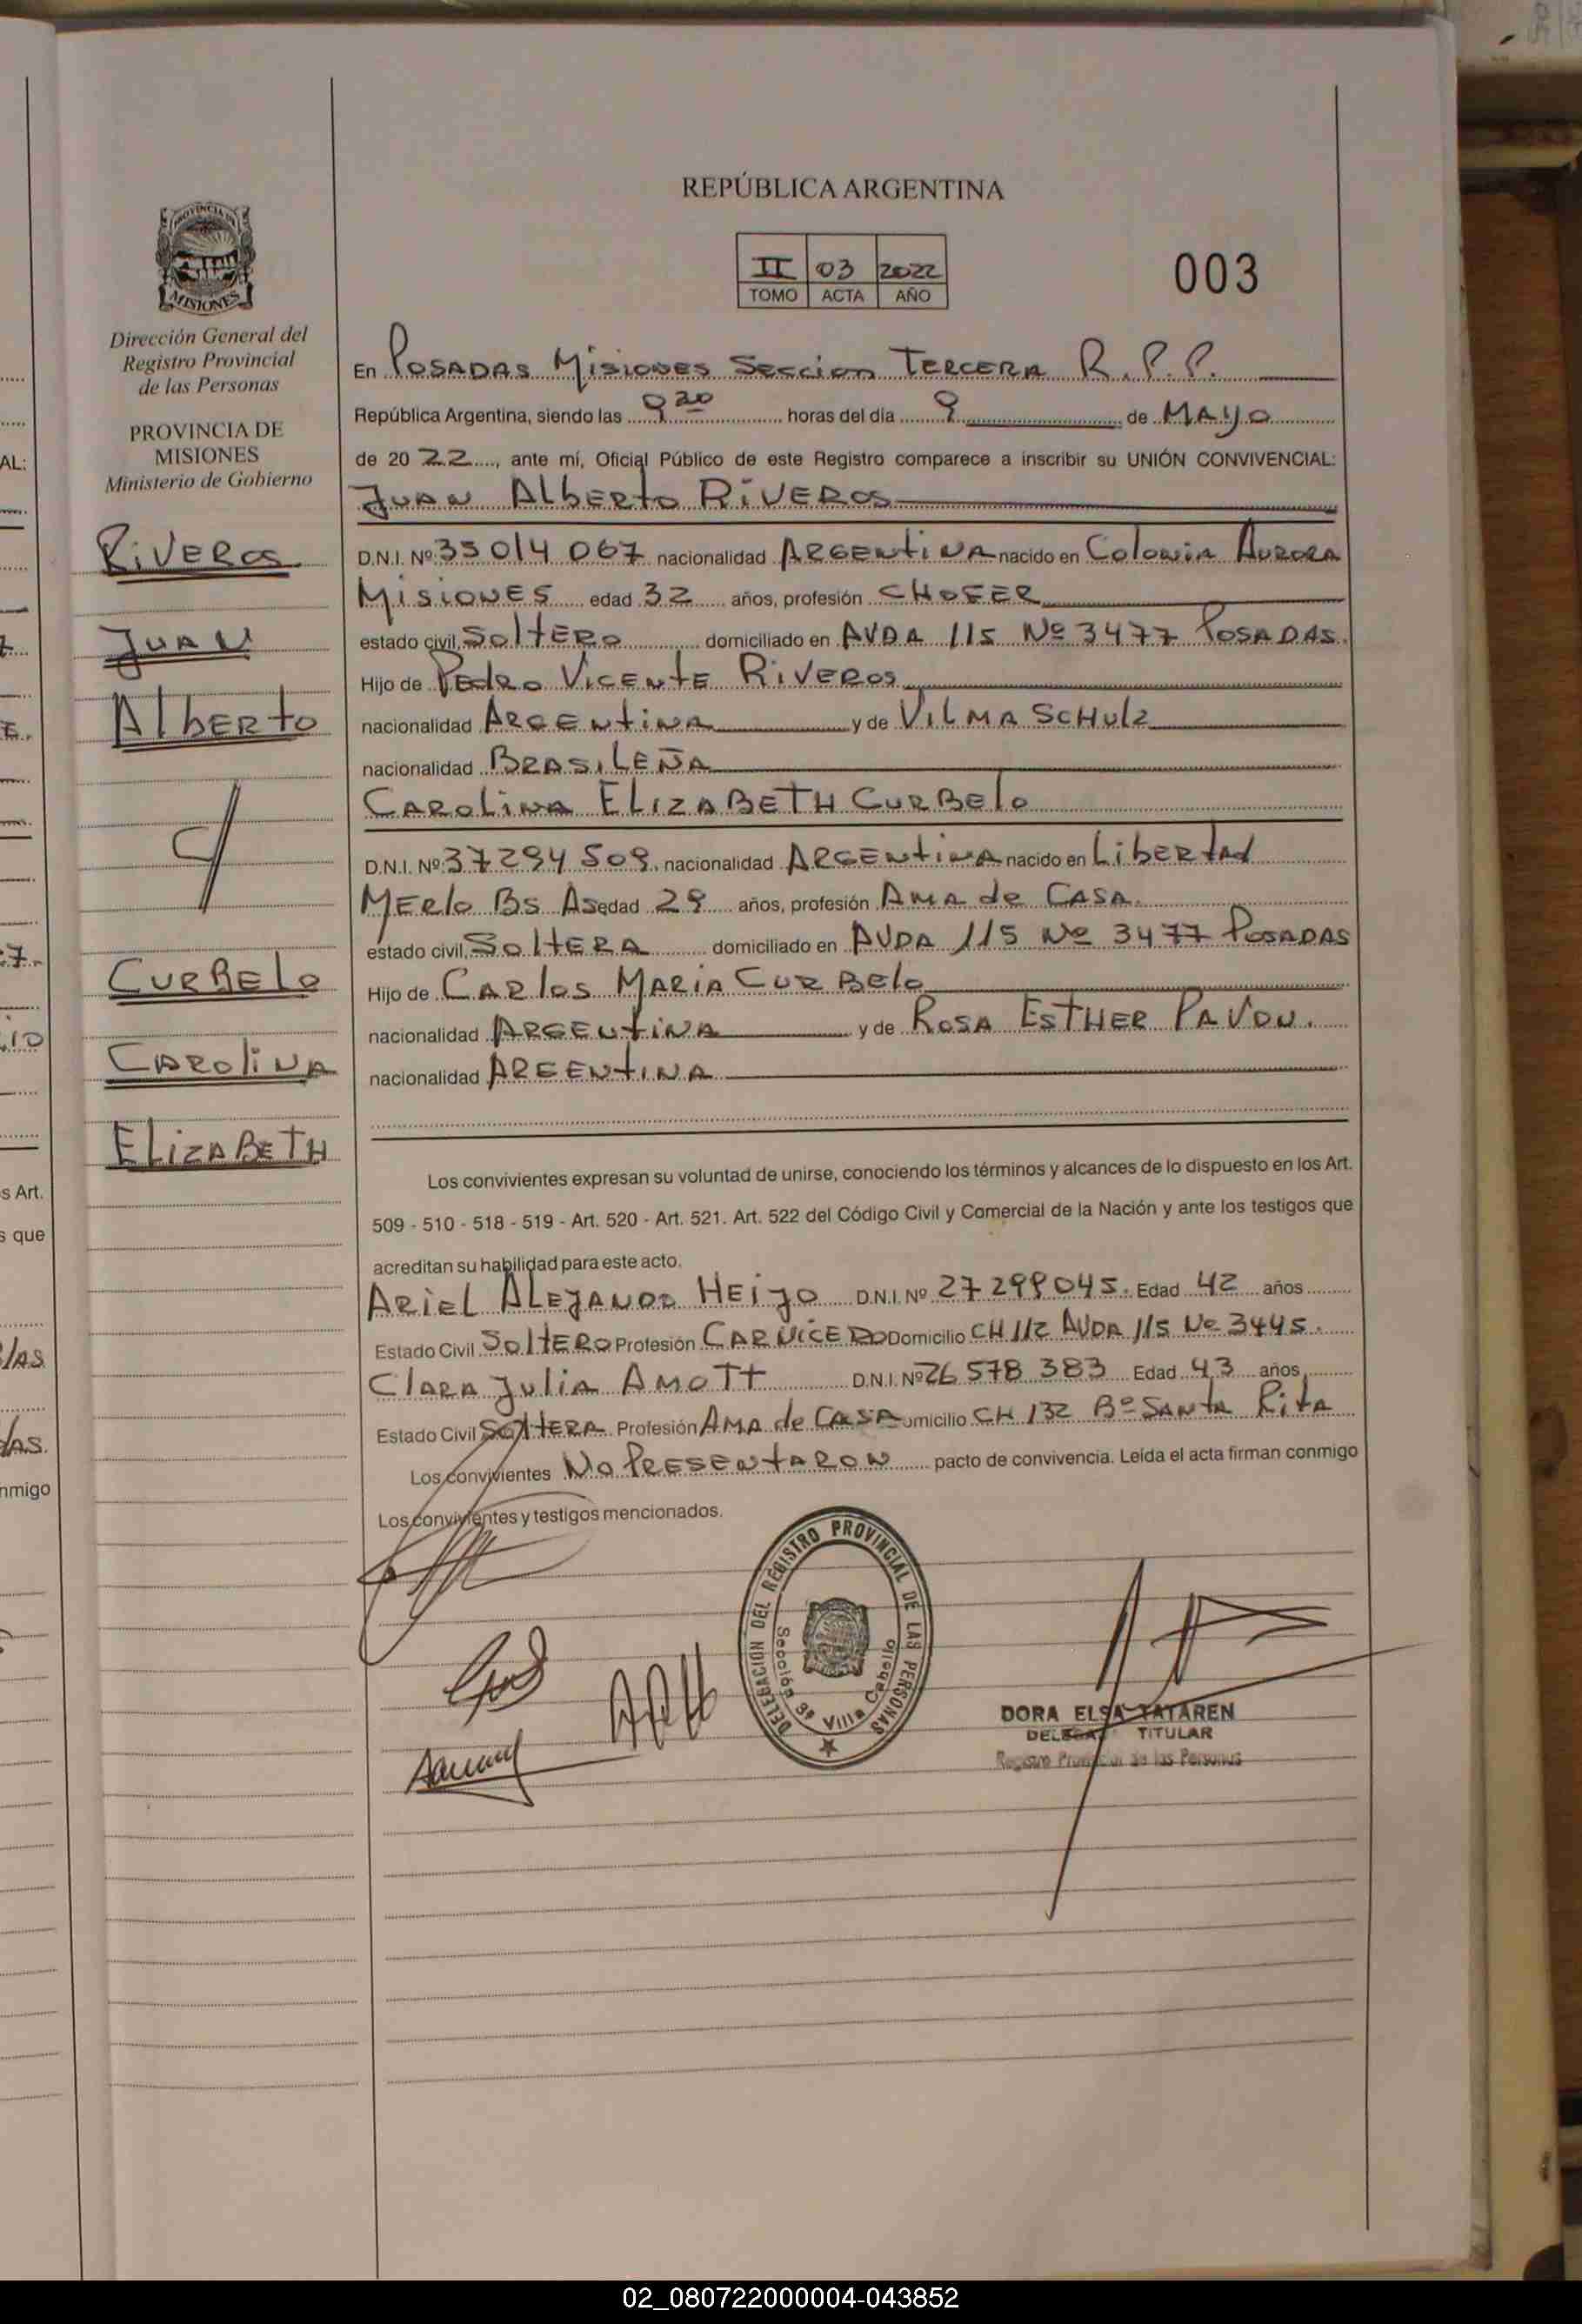 REPÚBLICA ARGENTINA
II 03 2022
TOMO ACTA AÑO
003
PROVINCIA DE
MISIONES
Dirección General del
Registro Provincial
de las Personas
PROVINCIA DE
MISIONES
Ministerio de Gobierno
RIVEROS
JUAN
AlBERTO
CURBELO
CAROLINA
ELIZABETH
En POSADAS MISIONES SECCION TERCERA R.P.P.
República Argentina, siendo las 9 20 horas del día 9 de MAYO
de 20 22, ante mí, Oficial Público de este Registro comparece a inscribir su UNIÓN CONVIVENCIAL:
JUAN AlBERTO RIVEROS
D.N.I. Nº 35 014 067 nacionalidad ARGENTINA nacido en COLONIA AURORA
MISIONES edad 32 años, profesión CHOFER
estado civil SOLTERO domiciliado en AVDA 115 Nº 3477 POSADAS.
Hijo de PEDRO VICENTE RIVEROS
nacionalidad ARGENTINA y de VILMA SCHULZ
nacionalidad BRASILEÑA
CAROLINA ELIZABETH CURBELO
D.N.I. Nº 37294509, nacionalidad ARGENTINA nacido en LIBERTAD
MERLO BS AS edad 29 años, profesión AMA de CASA.
estado civil SOLTERA domiciliado en AVDA 115 Nº 3477 POSADAS
Hijo de CARLOS MARIA CURBELO
nacionalidad ARGENTINA y de ROSA ESTHER PAVON.
nacionalidad ARGENTINA
Los convivientes expresan su voluntad de unirse, conociendo los términos y alcances de lo dispuesto en los Art.
509 - 510 - 518 - 519 - Art. 520 - Art. 521. Art. 522 del Código Civil y Comercial de la Nación y ante los testigos que
acreditan su habilidad para este acto.
ARIEL ALEJANDO HEIJO D.N.I. Nº 27 299 045. Edad 42 años
Estado Civil SOLTERO Profesión CARNICERO Domicilio CH 112 AVDA 115 Nº 3445.
CLARA JULIA AMOTT D.N.I. Nº 26 578 383 Edad 43 años
Estado Civil SOLTERA Profesión AMA de CASA omicilio CH 132 Bº SANTA RITA
Los convivientes NO PRESENTARON pacto de convivencia. Leída el acta firman conmigo
Los convivientes y testigos mencionados.
DELEGACIÓN DEL REGISTRO PROVINCIAL DE LAS PERSONAS
Sección 3ª Villa Cabello
DORA ELSA TATAREN
DELEGA TITULAR
Registro Provincial de las Personas
AL:
s Art.
s que
nmigo
02_080722000004-043852